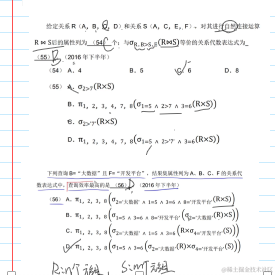 给定关系R（A，B，C，D）和关系S（A，C，E，F），对其进行自然连接运算
R⋈S后的属性列为（54）个；与σR.B>S.E(R⋈S)等价的关系代数表达式为
（55）B （2016年下半年）
(54) A．4 B．5 C．6 D．8
(55) A．σ2>7(R×S)
B．π1, 2, 3, 4, 7, 8(σ1=5∧2>7∧3=6(R×S))
C．σ2>'7'(R×S)
D．π1, 2, 3, 4, 7, 8(σ1=5∧2>'7'∧3=6(R×S))
下列查询B=“大数据”且F=“开发平台”，结果集属性列为A、B、C、F的关系代
数表达式中，查询效率最高的是（56）D（2016年下半年）
(56) A．π1, 2, 3, 8(σ2='大数据'∧1=5∧3=6∧8='开发平台'(R×S))
B．π1, 2, 3, 8(σ1=5∧3=6∧8='开发平台'(σ2='大数据'(R)×S))
C．π1, 2, 3, 8(σ2='大数据'∧1=5∧3=6(R×σ4='开发平台'(S)))
D．π1, 2, 3, 8(σ1=5∧3=6(σ2='大数据'(R)×σ4='开发平台'(S)))
@稀土掘金技术社区